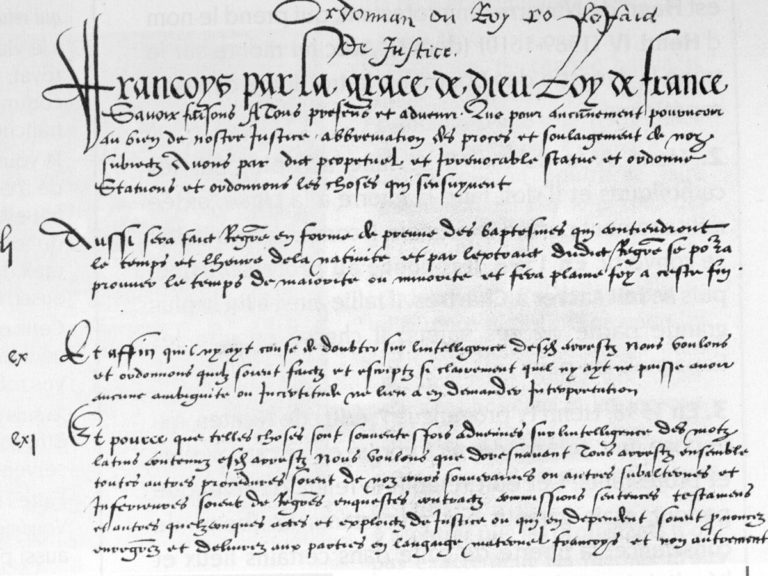 Ordonnan du Roy sur le faid
De Justice.
Francoys par la grace de dieu Roy de france
Scavoir faisons A Tous presens et advenir Que pour aucunement pourveoir
au bien de nostre Justice abbreviation des proces et soulaigement de noz
subiectz Avons par edict perpetuel et Irrevocable statue et ordonne
Statuons et ordonnons les choses qui sensuyvent
lj Aussi sera faict Regre en forme de preuve des baptesmes qui contiendront
le temps et lheure de la nativite et par lextraict dudict Regre se porra
prouver le temps de maiorite ou minorite et fera plaine foy a ceste fin.
cx Et affin quil ny ayt cause de doubter sur lintelligence desdz arrestz Nous voulons
et ordonnons quilz soient faictz et escriptz si clairement quil ny ayt ne puisse avoir
aucune ambiguite ou Incertitude ne lieu a en demander Interpretation
cxi Et pource que telles choses sont souventesfois advenues sur lintelligence des motz
latins contenuz esdz arrestz Nous voulons que doresnavant Tous arrestz ensemble
toutes autres procedures soient de noz cours souveraines ou autres subalternes et
Inferieures soient de Regres enquestes contractz commissions sentences testamens
et autres quelzconques actes et exploictz de Justice ou qui en dependent soient prononcez
enregrez et delivrez aux parties en langaige maternel francoys et non autrement